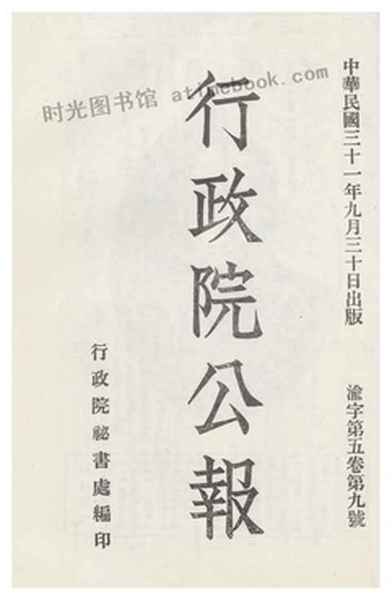 中華民國三十一年九月三十日出版
渝字第五卷第九號
行政院公報
行政院祕書處編印
时光图书馆 atimebook.com